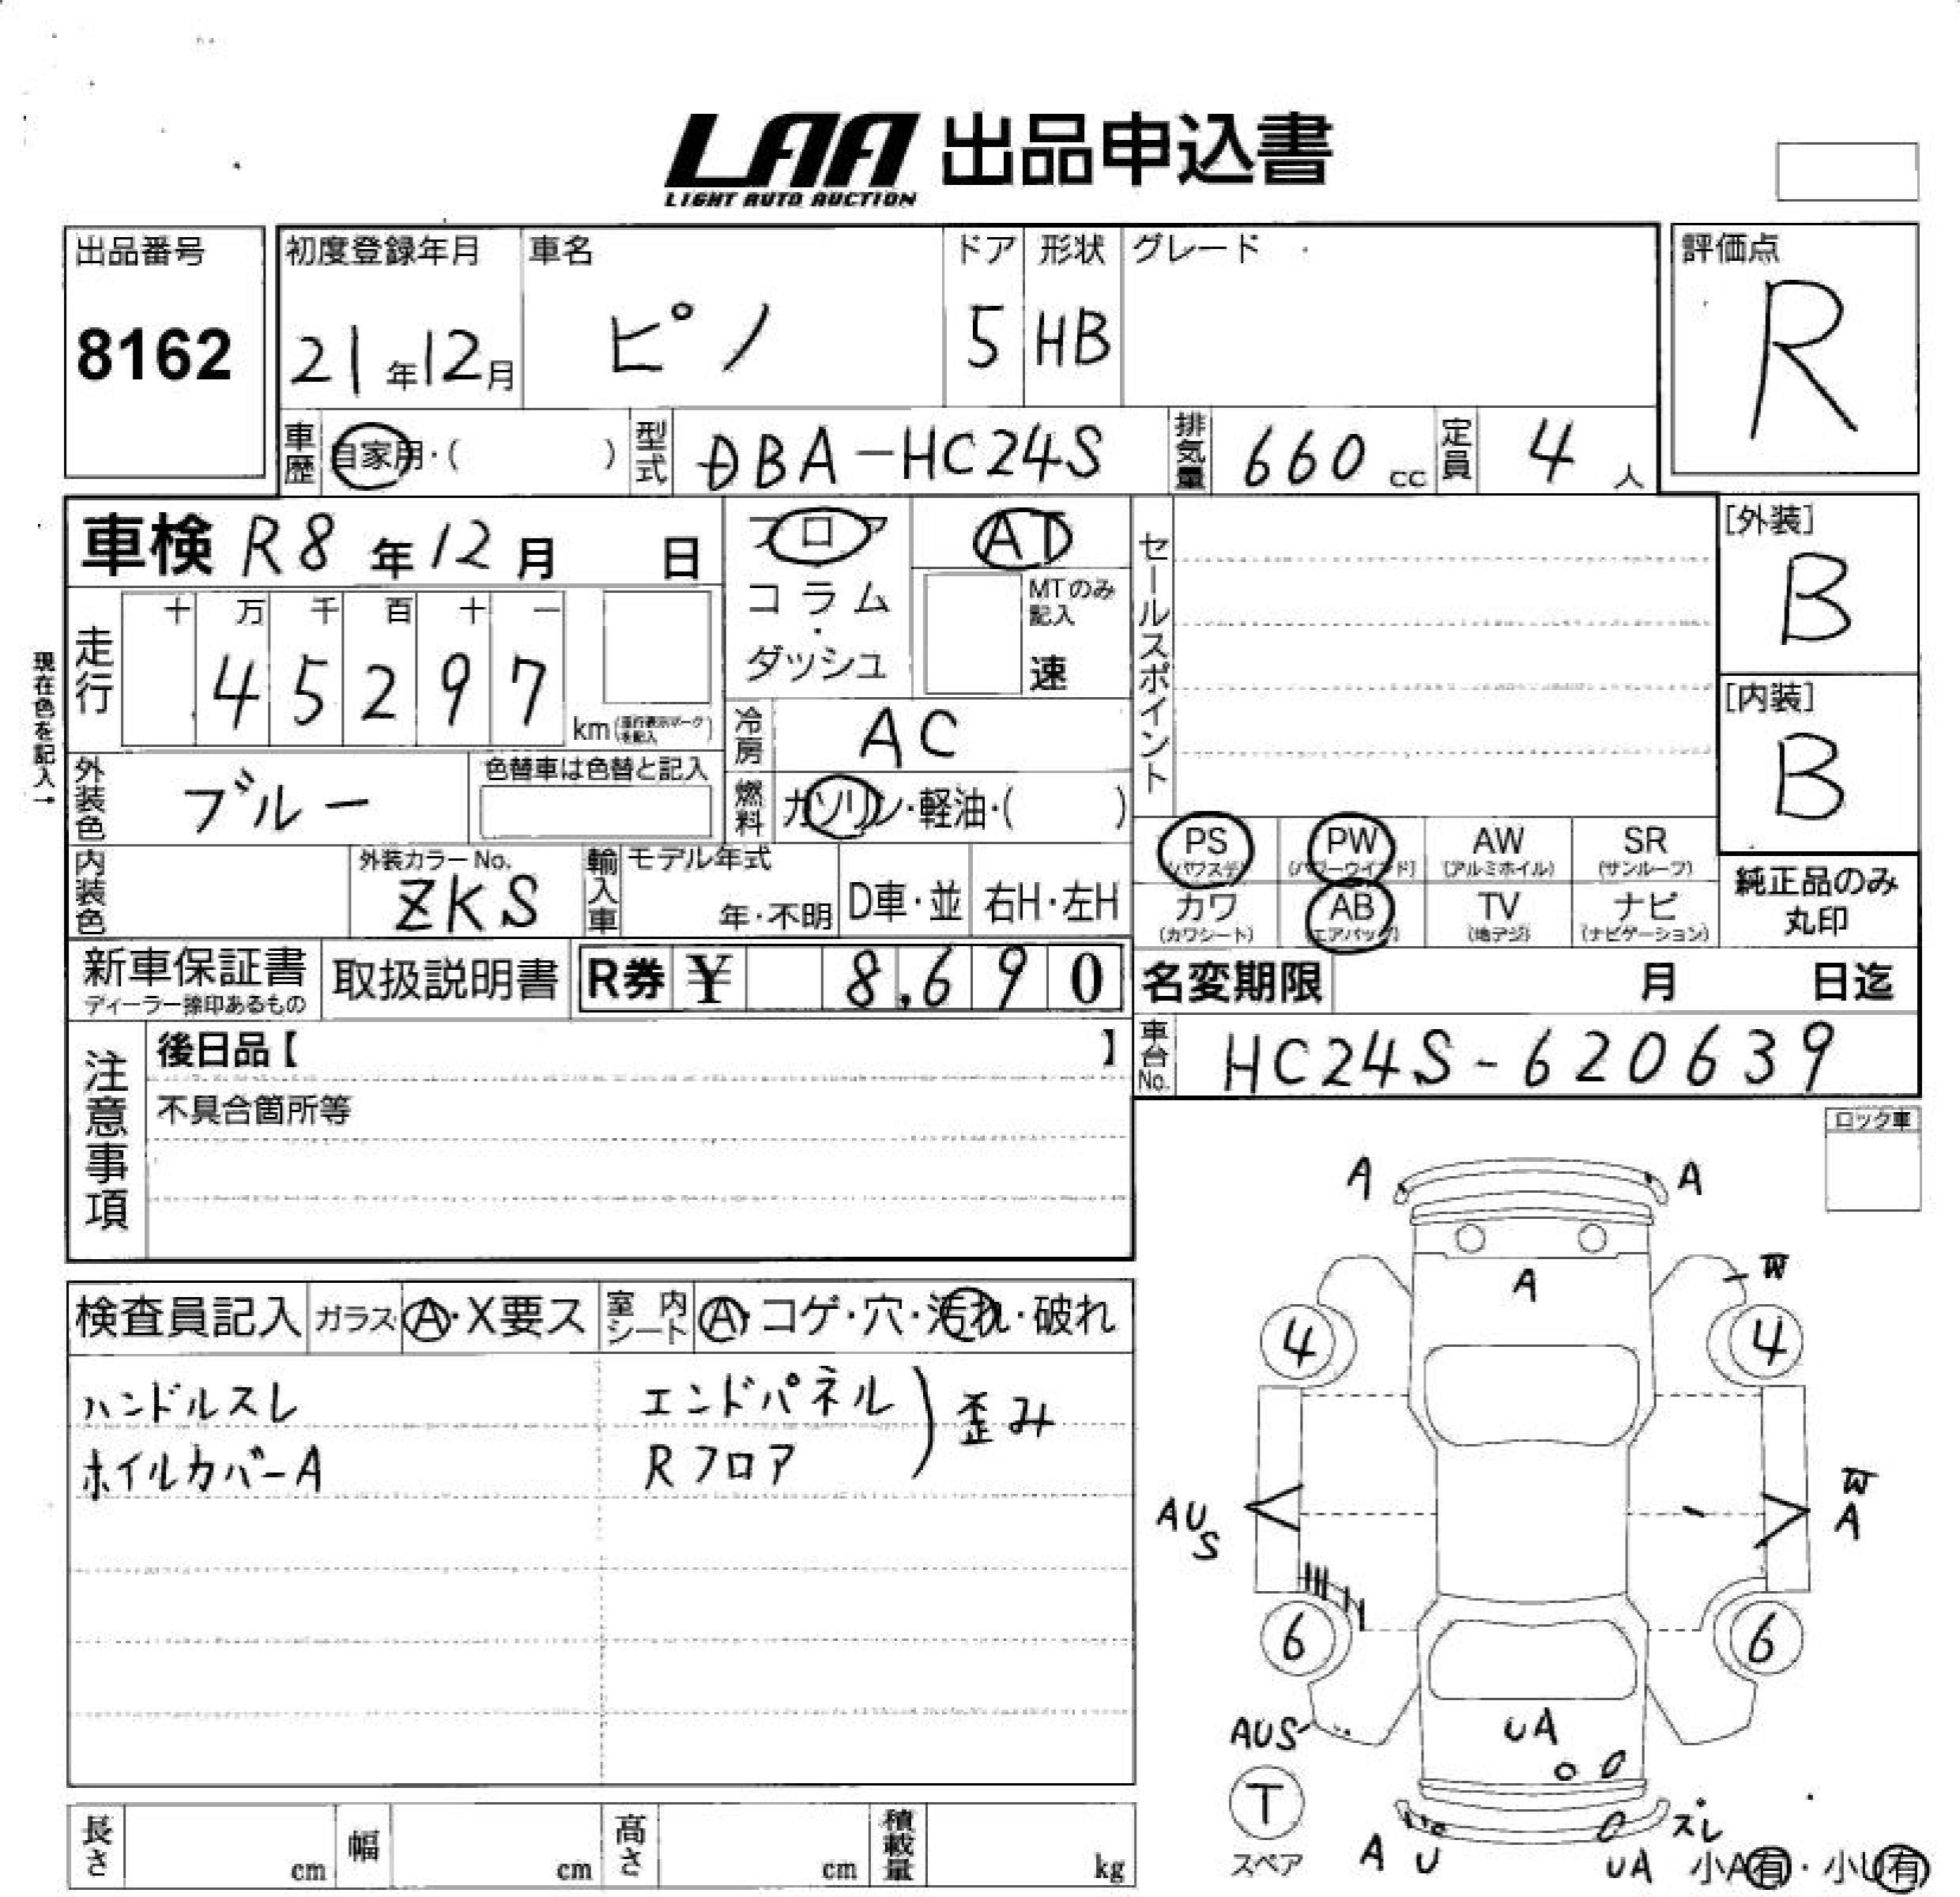 LAA 出品申込書
LIGHT AUTO AUCTION
出品番号
8162
初度登録年月
21年12月
車名
ピノ
ドア
5
形状
HB
グレード
評価点
R
車歴
自家用・( )
型式
DBA-HC24S
排気量
660 cc
定員
4 人
車検 R8年12月 日
フロア
コラム
・
ダッシュ
AT
MTのみ
記入
速
セールスポイント
[外装]
B
[内装]
B
現在色を記入→
走行
十 万 千 百 十 一
4 5 2 9 7
km(走行表示マークを記入)
冷房
AC
燃料
ガソリン・軽油・( )
外装色
ブルー
色替車は色替と記入
内装色
外装カラーNo.
ZKS
輸入車
モデル年式
年・不明
D車・並
右H・左H
PS
(パワステ)
PW
(パワーウインド)
AW
(アルミホイル)
SR
(サンルーフ)
カワ
(カワシート)
AB
(エアバッグ)
TV
(地デジ)
ナビ
(ナビゲーション)
純正品のみ
丸印
新車保証書
ディーラー捺印あるもの
取扱説明書
R券 ¥ 8,690
名変期限 月 日迄
車台No.
HC24S-620639
注意事項
後日品【 】
不具合箇所等
ロック車
検査員記入
ガラス
A・X要ス
室内シート
A・コゲ・穴・汚れ・破れ
ハンドルスレ
エンドパネル
ホイルカバーA
Rフロア
歪み
A
A
A
W
4
4
AU
S
W
A
6
6
AUS
UA
T
スペア
A U
UA
スレ
小A有・小U有
長さ
cm
幅
cm
高さ
cm
積載量
kg